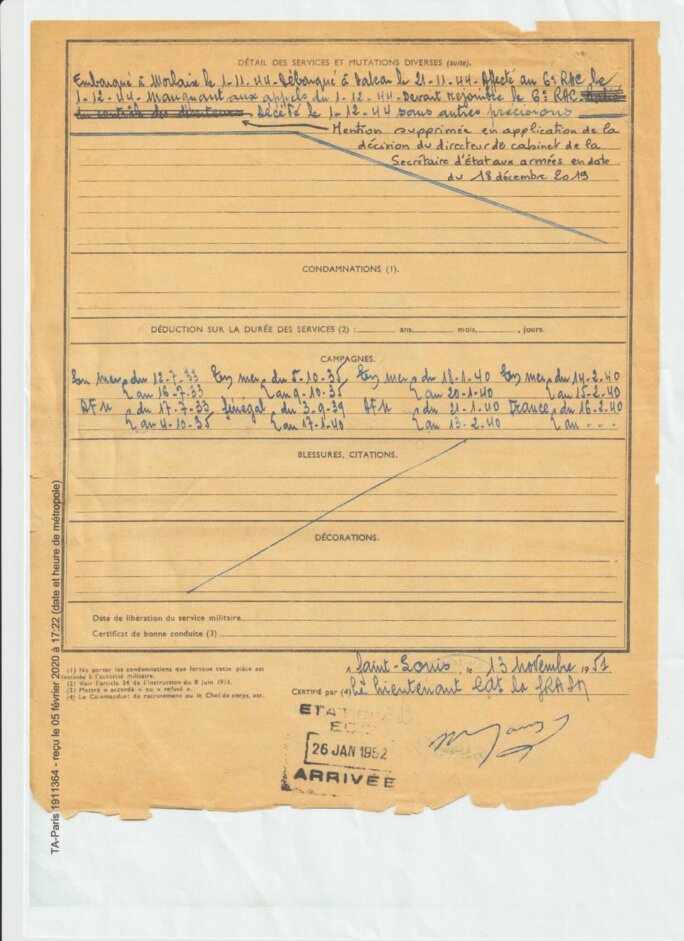 DÉTAIL DES SERVICES ET MUTATIONS DIVERSES (suite).
Embarqué à Morlaix le 1-11-44-Débarqué à Dakar le 21-11-44-Affecté au 6e RAC le
1-12-44-Manquant aux appels du 1-12-44-Devant rejoindre le 6e RAC
du contrôle des déserteurs Décédé le 1-12-44 sans autres précisions
Mention supprimée en application de la
décision du directeur de cabinet de la
Secrétaire d'état aux armées en date
du 18 décembre 2019
CONDAMNATIONS (1).
DÉDUCTION SUR LA DURÉE DES SERVICES (2) : ans, mois, , jours.
CAMPAGNES.
En mer du 12-7-33 En mer du 5-10-35 En mer du 18-1-40 En mer du 14-2-40
au 16-7-33 au 9-10-35 au 20-1-40 au 15-2-40
AFN du 17-7-33 Sénégal du 3-9-39 AFN du 21-1-40 France du 16-2-40
au 4-10-35 au 17-1-40 au 13-2-40 au - - -
BLESSURES, CITATIONS.
DÉCORATIONS.
Date de libération du service militaire
Certificat de bonne conduite (3)
A Saint-Louis le 13 novembre 1951
CERTIFIÉ par (4) Le Lieutenant Cdt la
(1) Ne porter les condamnations que lorsque cette pièce est
destinée à l'autorité militaire.
(2) Voir l'article 34 de l'instruction du 8 juin 1911.
(3) Mettre « accordé » ou « refusé ».
(4) Le Commandant de recrutement ou le Chef de corps, etc.
26 JAN 1952
ARRIVÉE
TA-Paris 1911364 - reçu le 05 février 2020 à 17:22 (date et heure de métropole)